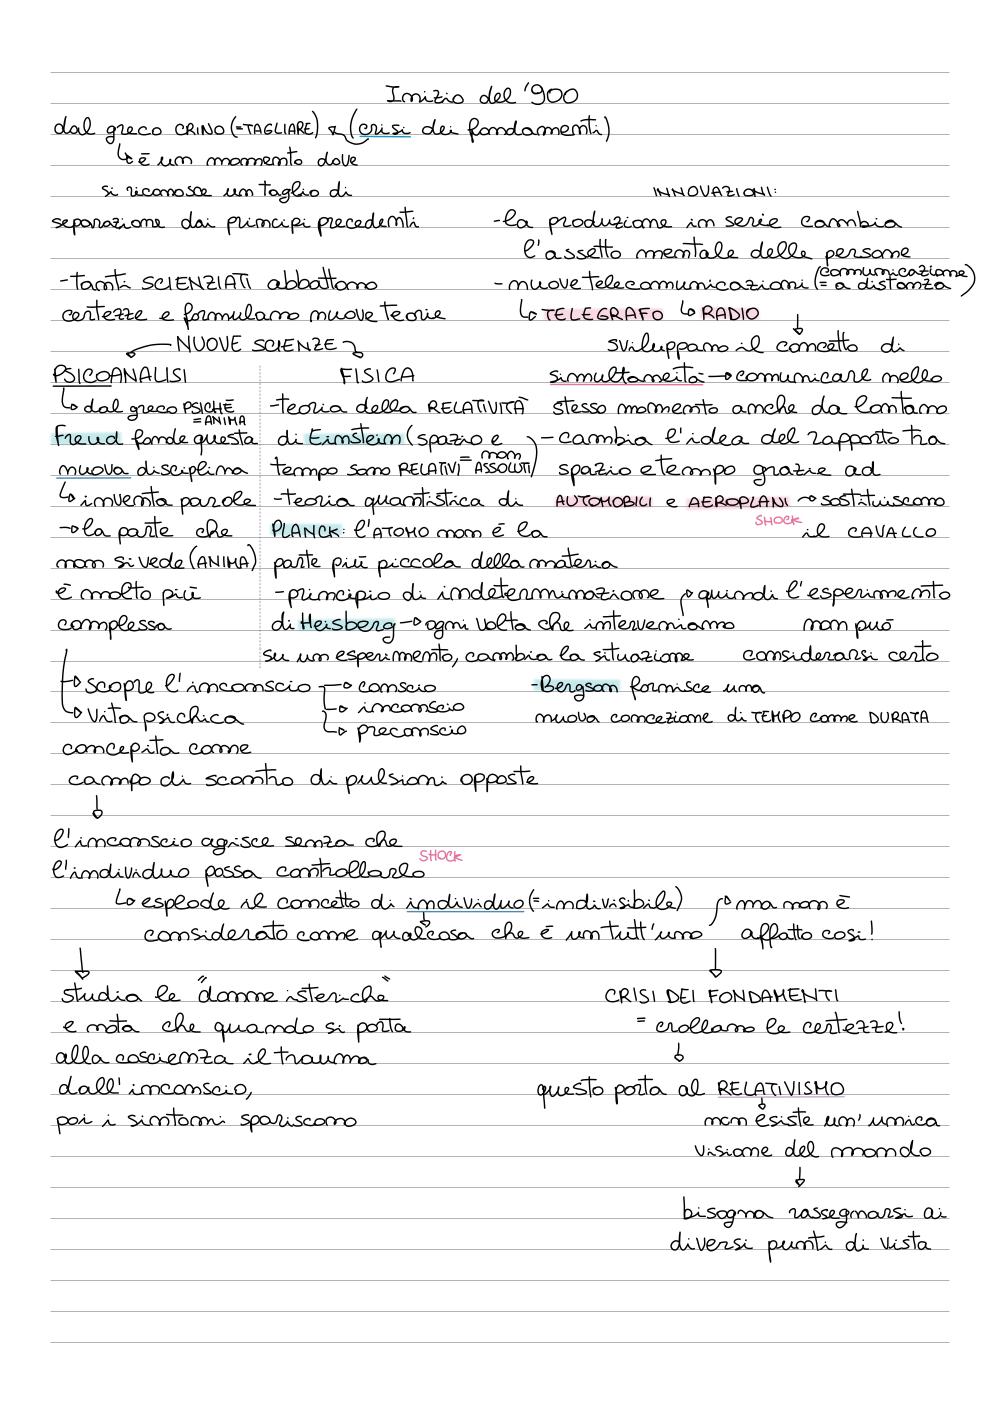 Inizio del '900
dal greco CRINO (=TAGLIARE) (crisi dei fondamenti)
è un momento dove
si riconosce un taglio di
separazione dai principi precedenti
-tanti SCIENZIATI abbattono
certezze e formulano nuove teorie
NUOVE SCIENZE
PSICOANALISI
dal greco PSICHÉ
=ANIMA
Freud fonde questa
nuova disciplina
inventa parole
→la parte che
non si vede (ANIMA)
è molto più
complessa
scopre l'inconscio
conscio
inconscio
preconscio
vita psichica
concepita come
campo di scontro di pulsioni opposte
FISICA
-teoria della RELATIVITÀ
di Einstein (spazio e
tempo sono RELATIVI = non ASSOLUTI)
-teoria quantistica di
PLANCK: l'ATOMO non è la
parte più piccola della materia
-principio di indeterminazione
di Heisberg → ogni volta che interveniamo
su un esperimento, cambia la situazione
quindi l'esperimento
non può
considerarsi certo
-Bergson fornisce una
nuova concezione di TEMPO come DURATA
INNOVAZIONI:
-la produzione in serie cambia
l'assetto mentale delle persone
-nuove telecomunicazioni (= comunicazione a distanza)
TELEGRAFO RADIO
sviluppano il concetto di
simultaneità → comunicare nello
stesso momento anche da lontano
-cambia l'idea del rapporto tra
spazio e tempo grazie ad
AUTOMOBILI e AEROPLANI sostituiscono
SHOCK
il CAVALLO
l'inconscio agisce senza che
l'individuo possa controllarlo
SHOCK
esplode il concetto di individuo (=indivisibile)
considerato come qualcosa che è un tutt'uno
ma non è
affatto così!
studia le "donne isteriche"
e nota che quando si porta
alla coscienza il trauma
dall'inconscio,
poi i sintomi spariscono
CRISI DEI FONDAMENTI
= crollano le certezze!
questo porta al RELATIVISMO
non esiste un'unica
visione del mondo
bisogna rassegnarsi ai
diversi punti di vista